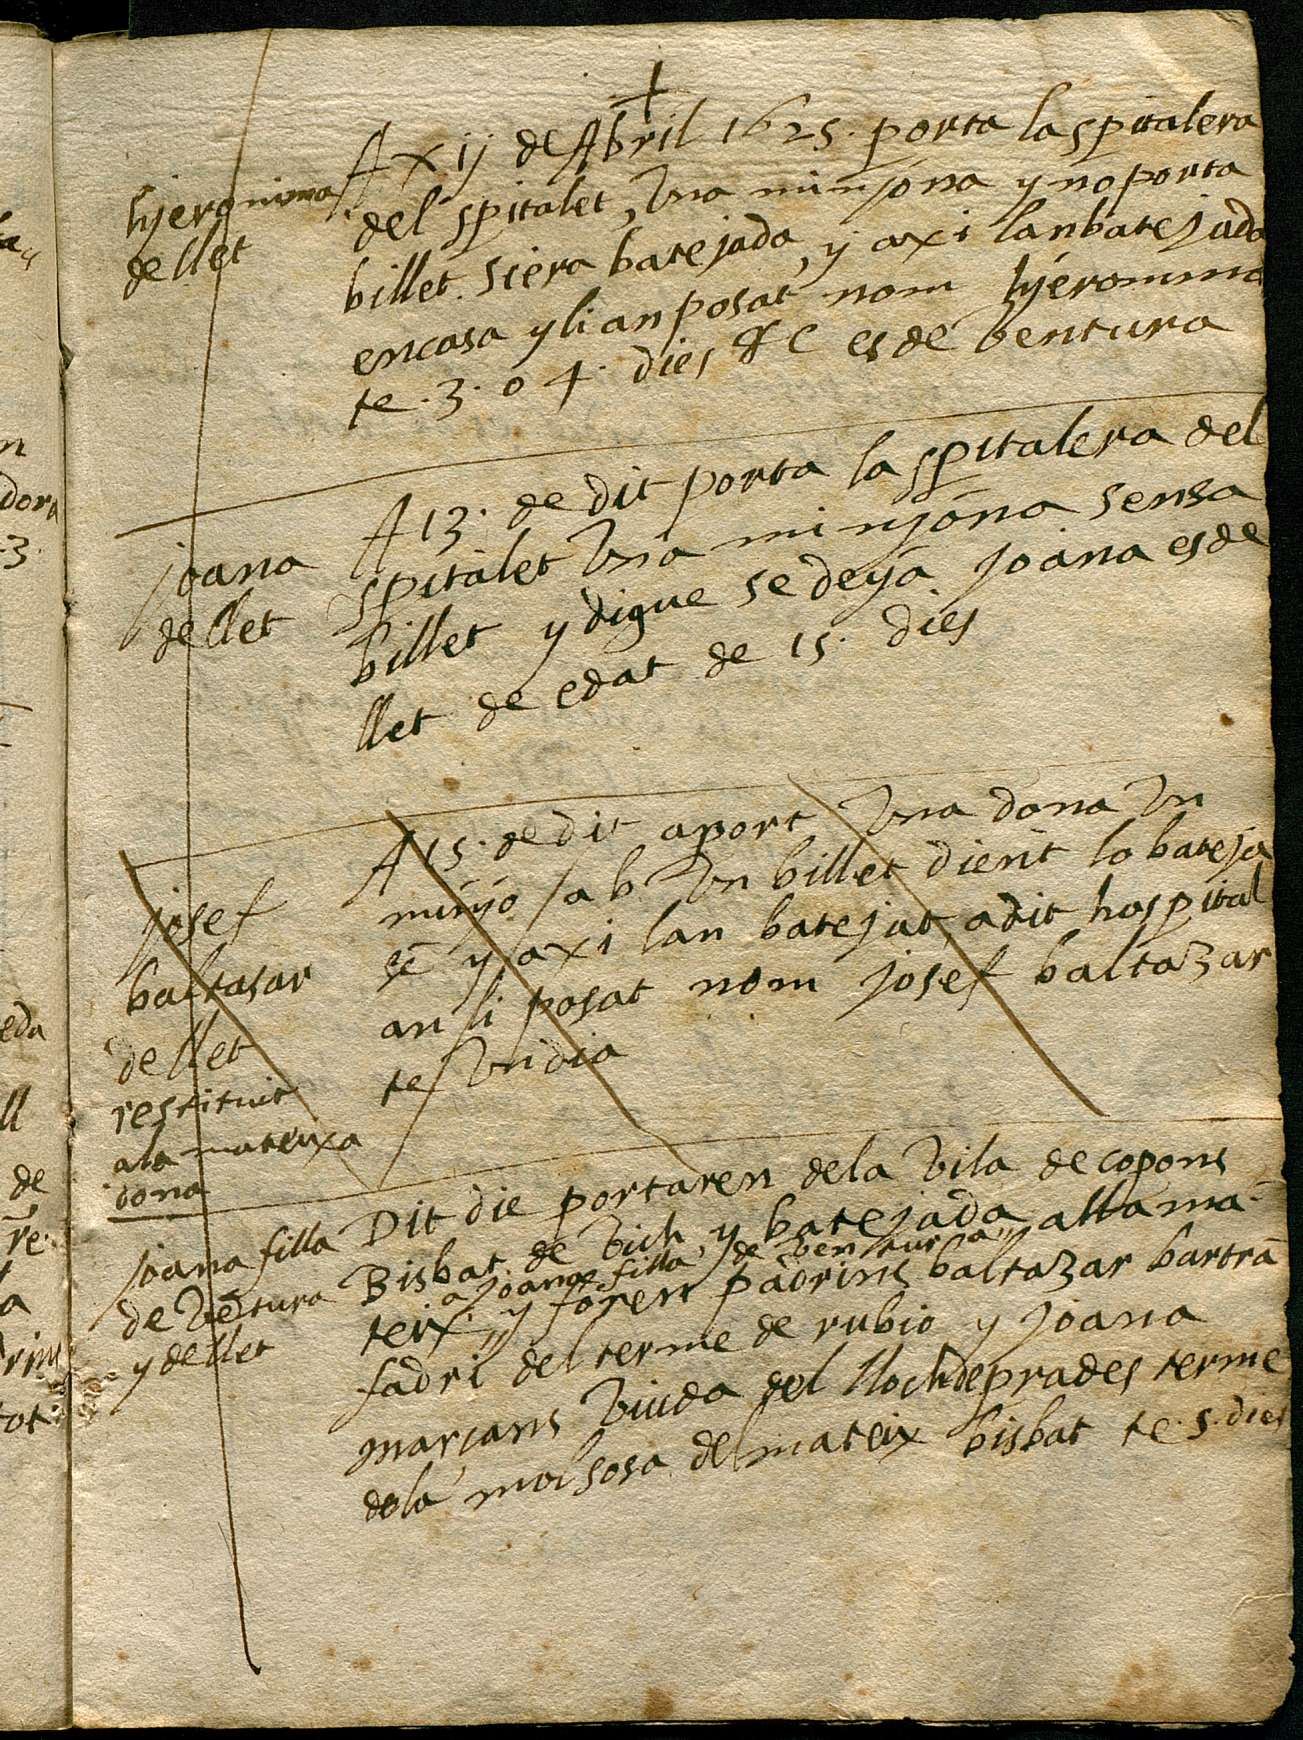 +
hyeronima
dellet
A xij de Abril 1625. porta la spitalera
del spitalet, Vna minyona y no porta
billet. si era batejada, y axi lan batejada
en casa y li an posat nom hyeronima
te .3. o 4. dies &c es de Ventura
joana
dellet
A 13. de dit porta la spitalera del
spitalet Vna minyona sensa
billet y digue se deya joana es de
llet de edat de 15. dies
josef
baltasar
de llet
restituit
ala mateixa
dona
A 15. de dit aport Vna dona Vn
minyo ab Vn billet dient lo bateja
sẽ y axi lan batejat, a dit hospital
an li posat nom josef baltazar
te Vn dia
joana filla
de Vẽtura
y de llet
Dit die portaren dela Vila de copons
Bisbat de Vich, y batejada alla ma-
a joana filla de Ventura,
teix. y foren padrins baltazar bartrã
fadri del terme de rubio y joana
marçans Viuda del lloch de prades terme
dela molsosa del mateix bisbat te .5. dies